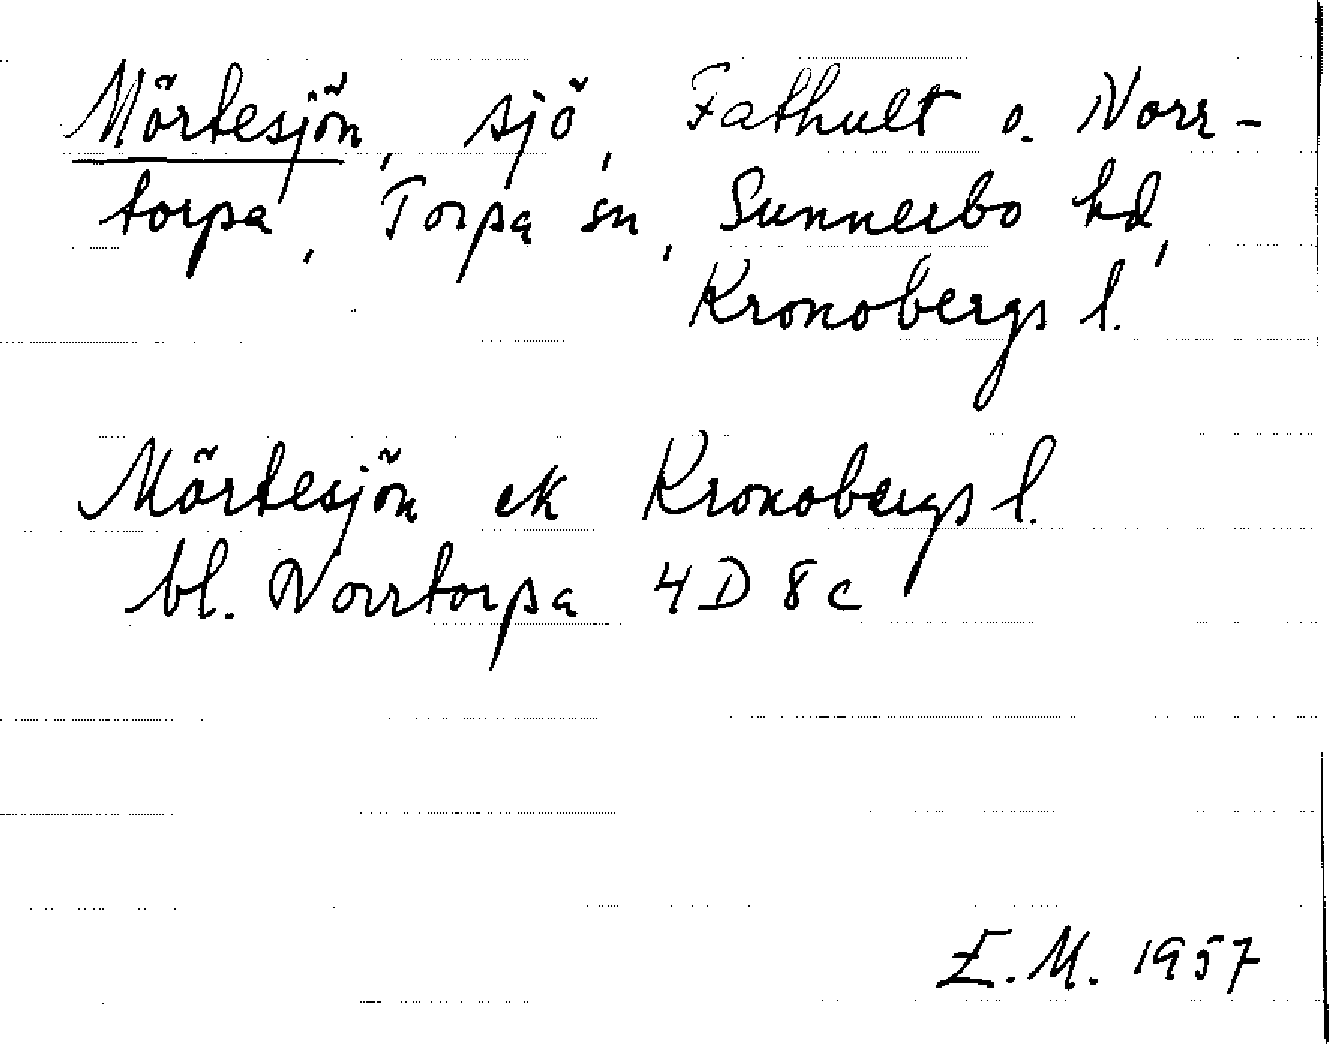 Mörtesjön, sjö, Fathult o. Norr-
torpa, Torpa sn, Sunnerbo hd,
Kronobergs l.
Mörtesjön ek Kronobergs l.
bl. Norrtorpa 4D8c
E.M. 1957